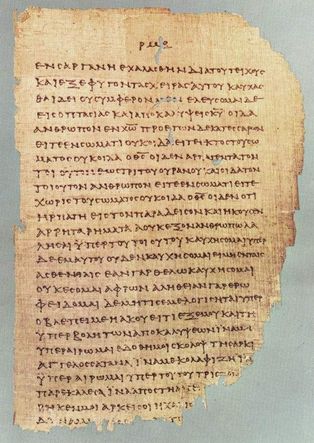 ΡΜΘ
ΕΝ ϹΑΡΓΑΝΗ ΕΧΑΛΑϹΘΗΝ ΔΙΑ ΤΟΥ ΤΕΙΧΟΥϹ
ΚΑΙ ΕΞΕΦΥΓΟΝ ΤΑϹ ΧΕΙΡΑϹ ΑΥΤΟΥ ΚΑΥΧΑϹ
ΘΑΙ ΔΕΙ ΟΥ ϹΥΜΦΕΡΟΝ ΜΕΝ ΕΛΕΥϹΟΜΑΙ ΔΕ
ΕΙϹ ΟΠΤΑϹΙΑϹ ΚΑΙ ΑΠΟΚΑΛΥΨΕΙϹ ΚΥ ΟΙΔΑ
ΑΝΘΡΩΠΟΝ ΕΝ ΧΩ ΠΡΟ ΕΤΩΝ ΔΕΚΑΤΕϹϹΑΡΩΝ
ΕΙΤΕ ΕΝ ϹΩΜΑΤΙ ΟΥΚ ΟΙΔΑ ΕΙΤΕ ΕΚΤΟϹ ΤΟΥ ϹΩ
ΜΑΤΟϹ ΟΥΚ ΟΙΔΑ Ο ΘϹ ΟΙΔΕΝ ΑΡΠΑΓΕΝΤΑ ΤΟΝ
ΤΟΙΟΥΤΟΝ ΕΩϹ ΤΡΙΤΟΥ ΟΥΡΑΝΟΥ ΚΑΙ ΟΙΔΑ ΤΟΝ
ΤΟΙΟΥΤΟΝ ΑΝΘΡΩΠΟΝ ΕΙΤΕ ΕΝ ϹΩΜΑΤΙ ΕΙΤΕ
ΧΩΡΙϹ ΤΟΥ ϹΩΜΑΤΟϹ ΟΥΚ ΟΙΔΑ Ο ΘϹ ΟΙΔΕΝ ΟΤΙ
ΗΡΠΑΓΗ ΕΙϹ ΤΟΝ ΠΑΡΑΔΕΙϹΟΝ ΚΑΙ ΗΚΟΥϹΕΝ
ΑΡΡΗΤΑ ΡΗΜΑΤΑ Α ΟΥΚ ΕΞΟΝ ΑΝΘΡΩΠΩ ΛΑ
ΛΗϹΑΙ ΥΠΕΡ ΤΟΥ ΤΟΙΟΥΤΟΥ ΚΑΥΧΗϹΟΜΑΙ ΥΠΕΡ
ΔΕ ΕΜΑΥΤΟΥ ΟΥΔΕΝ ΚΑΥΧΗϹΟΜΑΙ ΕΙ ΜΗ ΕΝ ΤΑΙϹ
ΑϹΘΕΝΕΙΑΙϹ ΕΑΝ ΓΑΡ ΘΕΛΩ ΚΑΥΧΗϹΟΜΑΙ
ΟΥΚ ΕϹΟΜΑΙ ΑΦΡΩΝ ΑΛΗΘΕΙΑΝ ΓΑΡ ΕΡΩ
ΦΕΙΔΟΜΑΙ ΔΕ ΜΗ ΤΙϹ ΕΜΕ ΛΟΓΙϹΗΤΑΙ ΥΠΕΡ
Ο ΒΛΕΠΕΙ ΜΕ Η ΑΚΟΥΕΙ ΤΙ ΕΞ ΕΜΟΥ ΚΑΙ ΤΗ
ΥΠΕΡΒΟΛΗ ΤΩΝ ΑΠΟΚΑΛΥΨΕΩΝ ΙΝΑ ΜΗ
ΥΠΕΡΑΙΡΩΜΑΙ ΕΔΟΘΗ ΜΟΙ ϹΚΟΛΟΨ ΤΗ ϹΑΡΚΙ
ΑΓΓΕΛΟϹ ϹΑΤΑΝΑ ΙΝΑ ΜΕ ΚΟΛΑΦΙΖΗ ΙΝΑ
ΥΠΕΡΑΙΡΩΜΑΙ ΥΠΕΡ ΤΟΥΤΟΥ ΤΡΙϹ
ΠΑΡΕΚΑΛΕϹΑ ΙΝΑ ΑΠΟϹΤΗ ΑΠ
ΕΙΡΗΚΕΝ ΜΟΙ ΑΡΚΕΙ ϹΟΙ Η ΧΑΡΙϹ